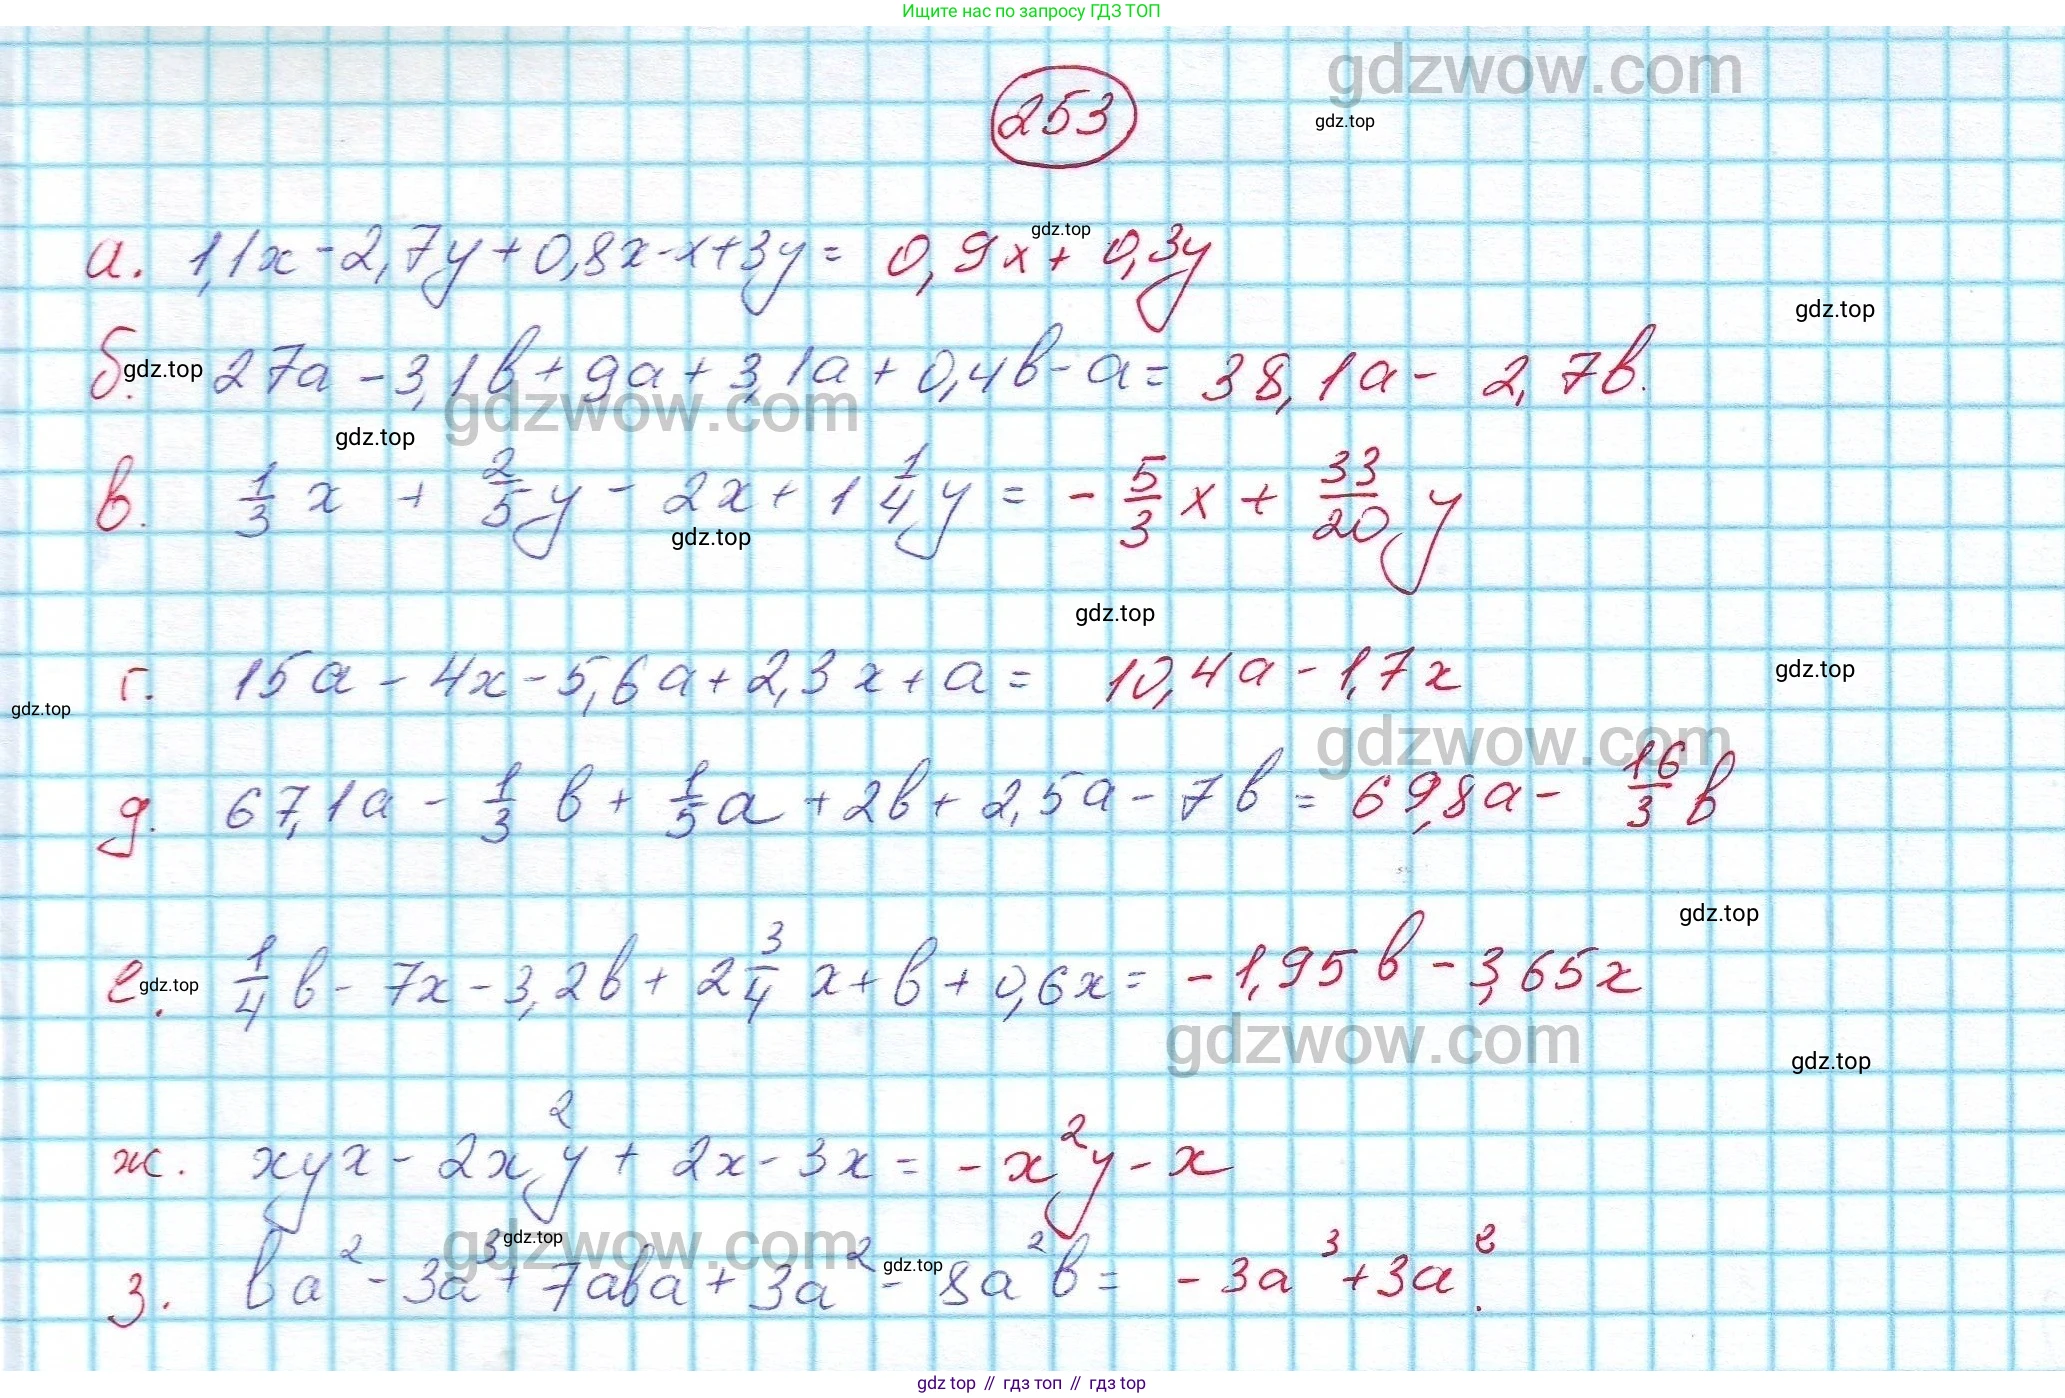 Ищите нас по запросу ГДЗ ТОП
gdzwow.com
gdz.top
253
gdz.top
а. 1,1x - 2,7y + 0,8x - x + 3y = 0,9x + 0,3y
gdz.top
б. gdz.top 27a - 3,1b + 9a + 3,1a + 0,4b - a = 38,1a - 2,7b.
gdzwow.com
gdz.top
в. 1/3 x + 2/5 y - 2x + 1 1/4 y = - 5/3 x + 33/20 y
gdz.top
gdz.top
г. 15a - 4x - 5,6a + 2,3x + a = 10,4a - 1,7x
gdz.top
gdz.top
gdzwow.com
д. 67,1a - 1/3 b + 1/5 a + 2b + 2,5a - 7b = 69,8a - 16/3 b
gdz.top
е. gdz.top 1/4 b - 7x - 3,2b + 2 3/4 x + b + 0,6x = - 1,95b - 3,65x
gdzwow.com
gdz.top
ж. xyx - 2x²y + 2x - 3x = - x²y - x
gdzwow.com
gdz.top
gdz.top
з. ba² - 3a³ + 7aba + 3a² - 8a²b = - 3a³ + 3a².
gdz top // гдз топ // гдз top